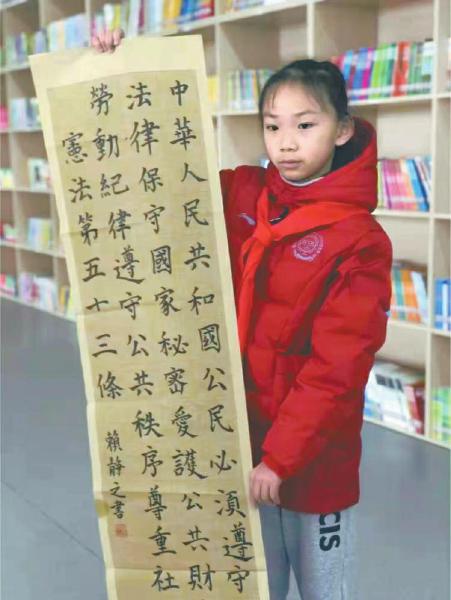 中華人民共和國公民必須遵守
法律保守國家秘密愛護公共財
勞動紀律遵守公共秩序尊重社
憲法第五十三條
賴靜之書
CIS